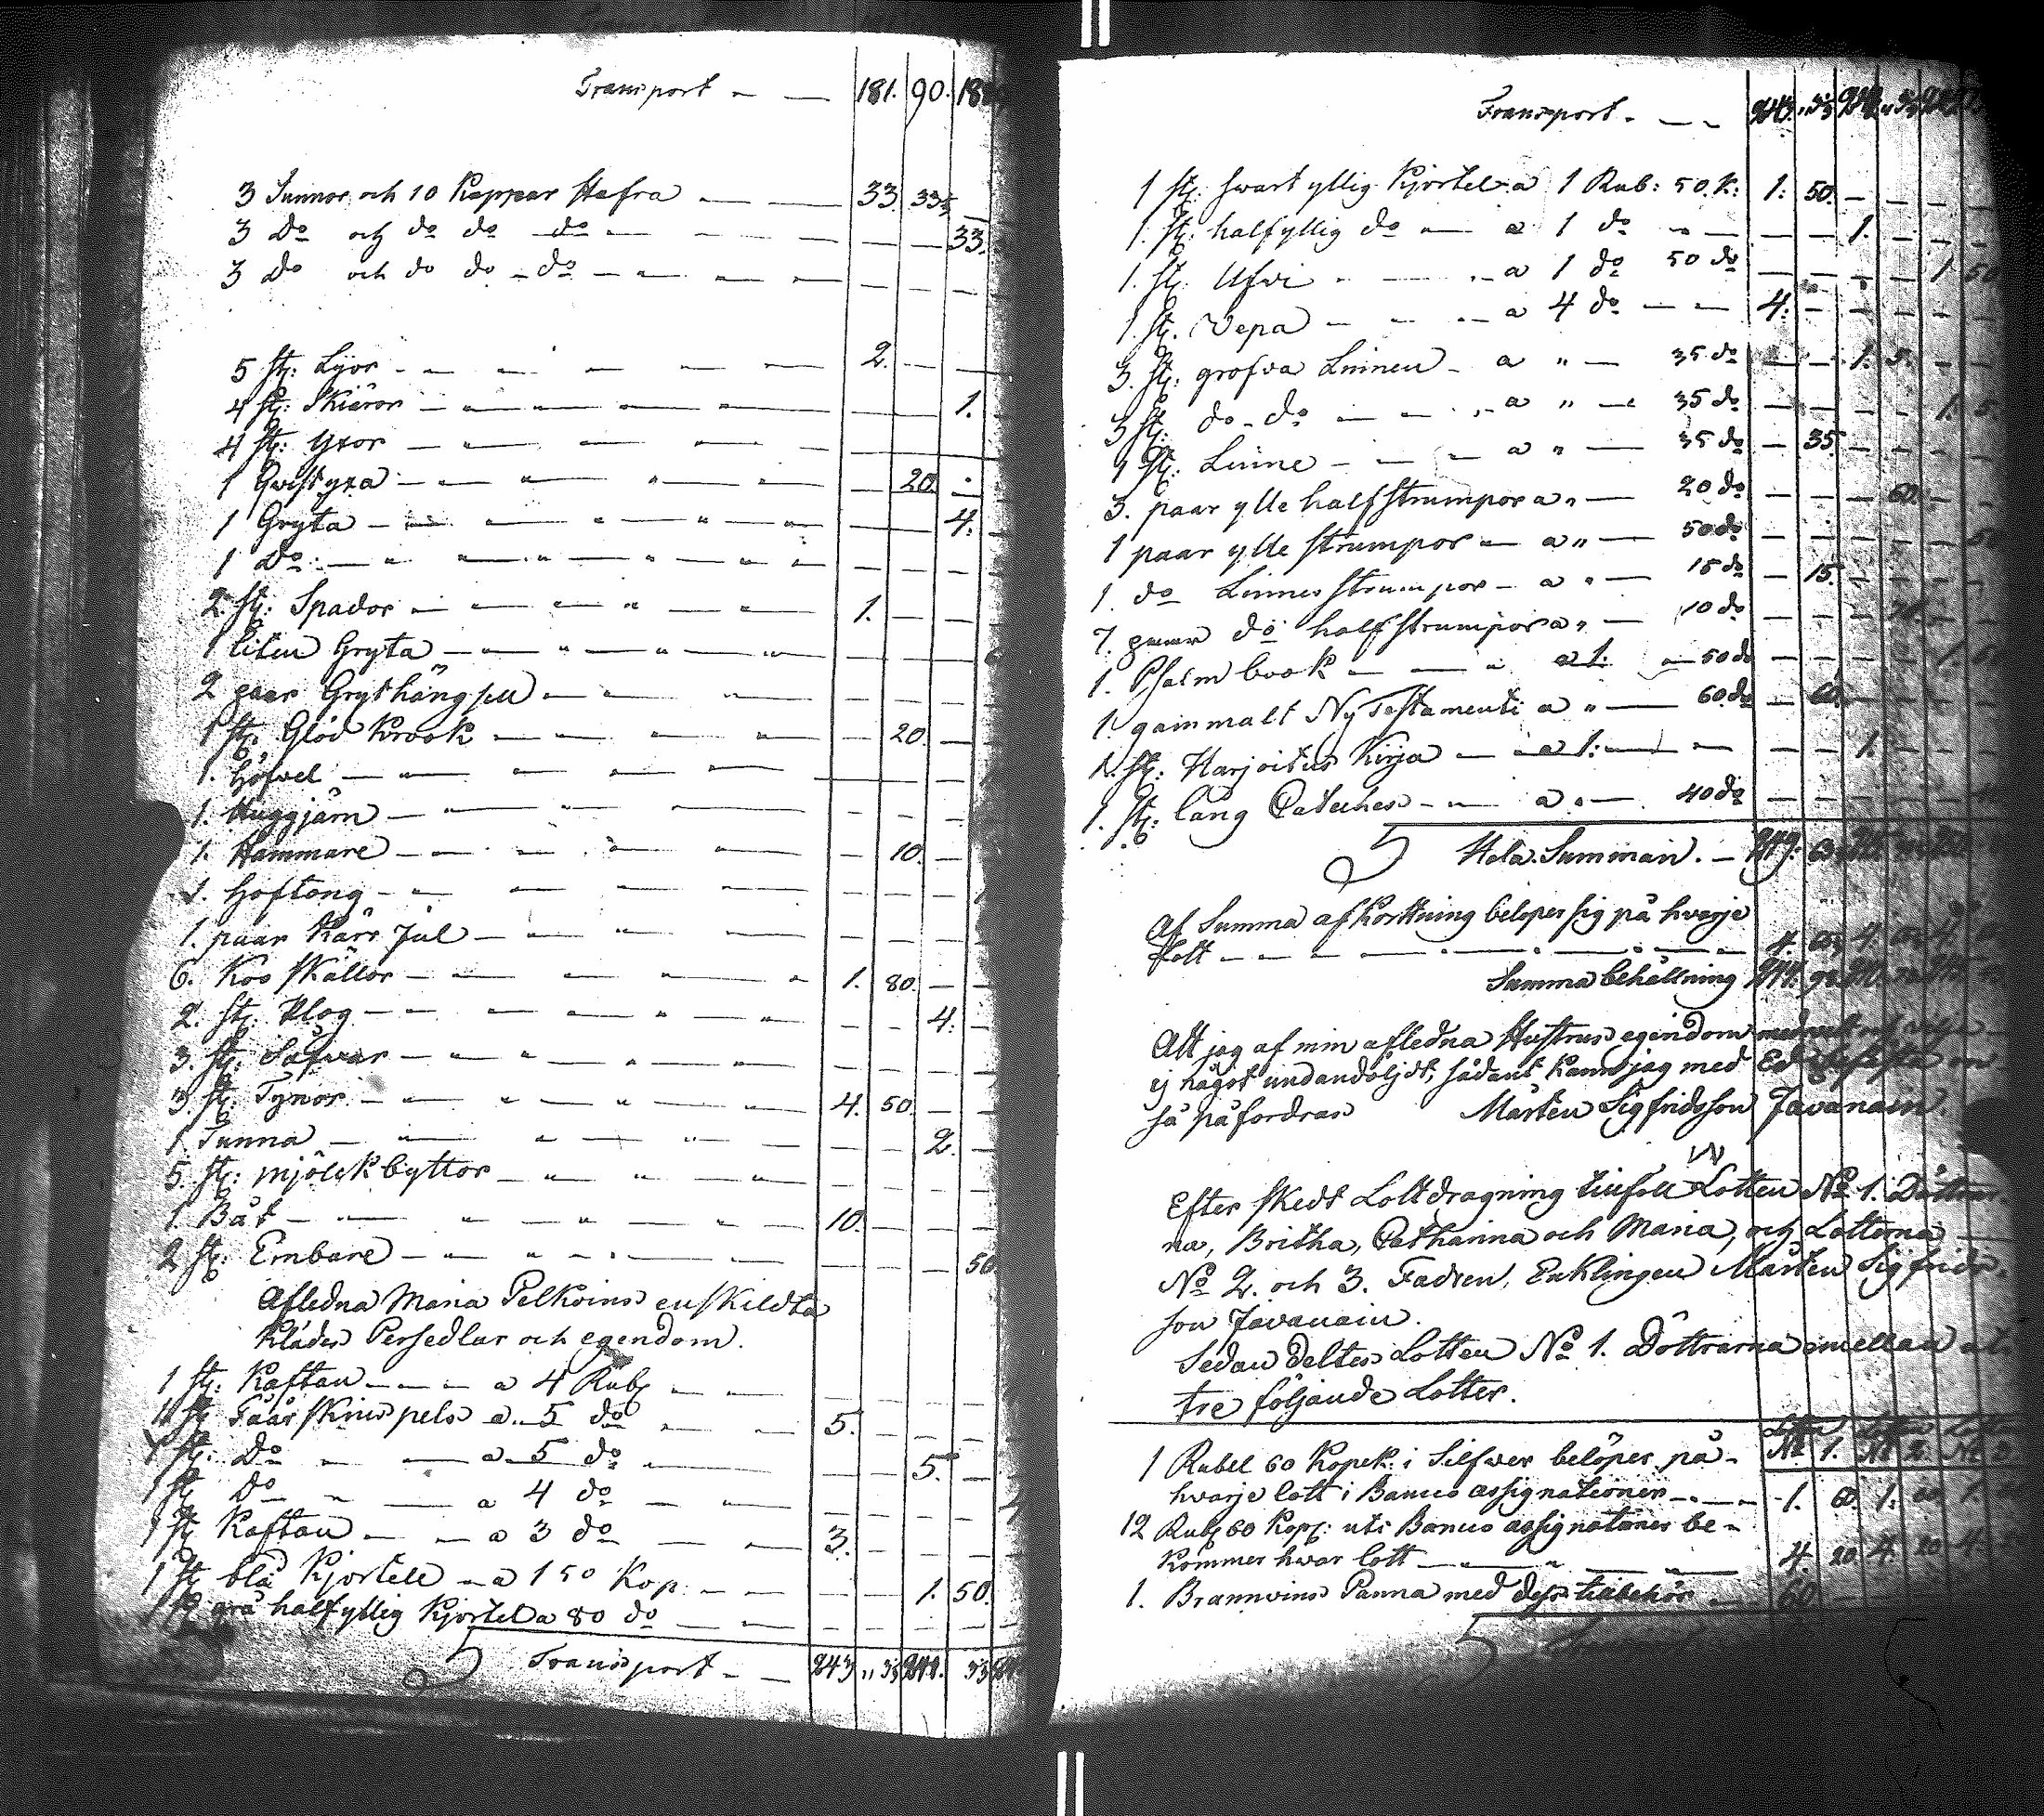 Transport - - 181. 90.
3 Tunnor och 10 Kappar Hafra - - 33. 33⅓ -
3 do och do do do - - - 33.
3 do och do do do - - -
5 st: Lyor - - - 2. - -
4 st: Skiäror - - - 1.
4 st: Yxor - - -
1 Qvistyxa - - - 20. -
1 Gryta - - - 4.
1 do - - -
2 st: Spador - - - 1. - -
1 liten Gryta - - -
2 paar Grythängsell - - -
1 st: Glöd Krook - - - 20. -
1. Höfvel - - -
1. Huggjärn - - -
1. Hammare - - - 10. -
1. Hoftong - - -
1. paar Kärr Jul - - -
6. Koo Skällor - - 1. 80. - -
2. st: Plog - - - 4. -
3. st: Såfvar - - -
3. st: Tynor - - 4. 50. - -
1 Tunna - - - 2. -
5 st: mjölck byttor - - -
1. Båt - - 10. - -
2 st: Embare - - - 50
Afledna Maria Pelkoins enskildta
Kläder Persedlar och egendom.
1 st: Kaftan - - a 4 Rub - -
1 st: Fåårskins pels a 5 do - 5. - -
1 st: Do - - a 5 do - - 5. -
1 st Do - - a 4 do - -
1 st Kaftan - - a 3 do - 3. - -
1 st blå Kjortell - a 1 50 Kop: - - 1. 50.
1 st grå halfyllig Kjortel a 80 do - -
Transport - - 243 " 33 241. 33
Transport - - -
1 st: svart yllig Kjortel a 1 Rub: 50 K: 1: 50. - -
1. st: halfyllig do - a 1 do - - - 1. - -
1. st: Ufvi - - a 1 do 50 do - - 1. 50
1 st. Vepa - - a 4 do - - 4: - -
3. st: grofva Linnen - a " - 35 do - - 1. 5. - -
3 st: do do - - a " - 35 do - - 1. 5.
1 st: Linne - - a " - 35 do - 35. - -
3. paar ylle halfstrumpor a " - 20 do - - 60. -
1 paar ylle strumpor - a " - 50 do - - 50
1. do Linnes strumpor - a " - 15 do - 15. - -
7. paar do halfstrumpor a " - 10 do - - 70. -
1. Psalm book - - a 1: - 50 do - - 1. 50
1. gammalt Ny Testamenti a " - 60 do - 60. - -
1. st: Harjoitus Kirja - - a 1: - - - 1. - -
1. st: lång Cateches - - a " - 40 do - - -
Hela Summan. - 249: 63
Af Summa afkortning beloper sig på hvarje
Lott - - -
Summa behållning
Att jag af min afledna Hustrus egendom
ej något undandöljdt, sådant kan jag med Ed
så påfordras Mårten Sigfridsson Javanain.
Efter skedt Lottdragning tillföll Lotten No 1. Döttrar-
na, Britha, Catharina och Maria, och Lotterna
No 2. och 3. Fadren, Enklingen Mårten Sigfrids-
son Javanain.
Sedan deltes Lotten No 1. Döttrarna emellan uti
tre följande Lotter.
Lotten Lotten Lotten
No 1. No 2. No 3
1 Rubel 60 Kopek: i Silfver belöper på
hvarje lott i Banco assignationer - - 1. 60. 1:
12 Rub 60 Kop: uti Banco assignationer be-
kommer hvar lott - - 4. 20. 4. 20 4.
1. Brännvins Panna med dess tillbehör - 60.